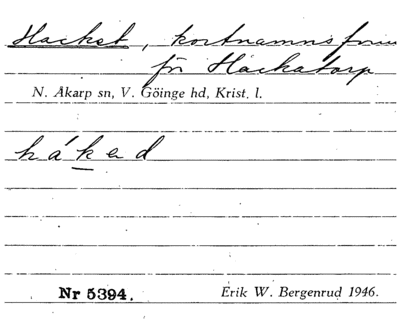 Hacket, kortnamnsform
för Hackatorp
N. Åkarp sn, V. Göinge hd, Krist. l.
hákəd
Nr 5394.
Erik W. Bergenrud 1946.